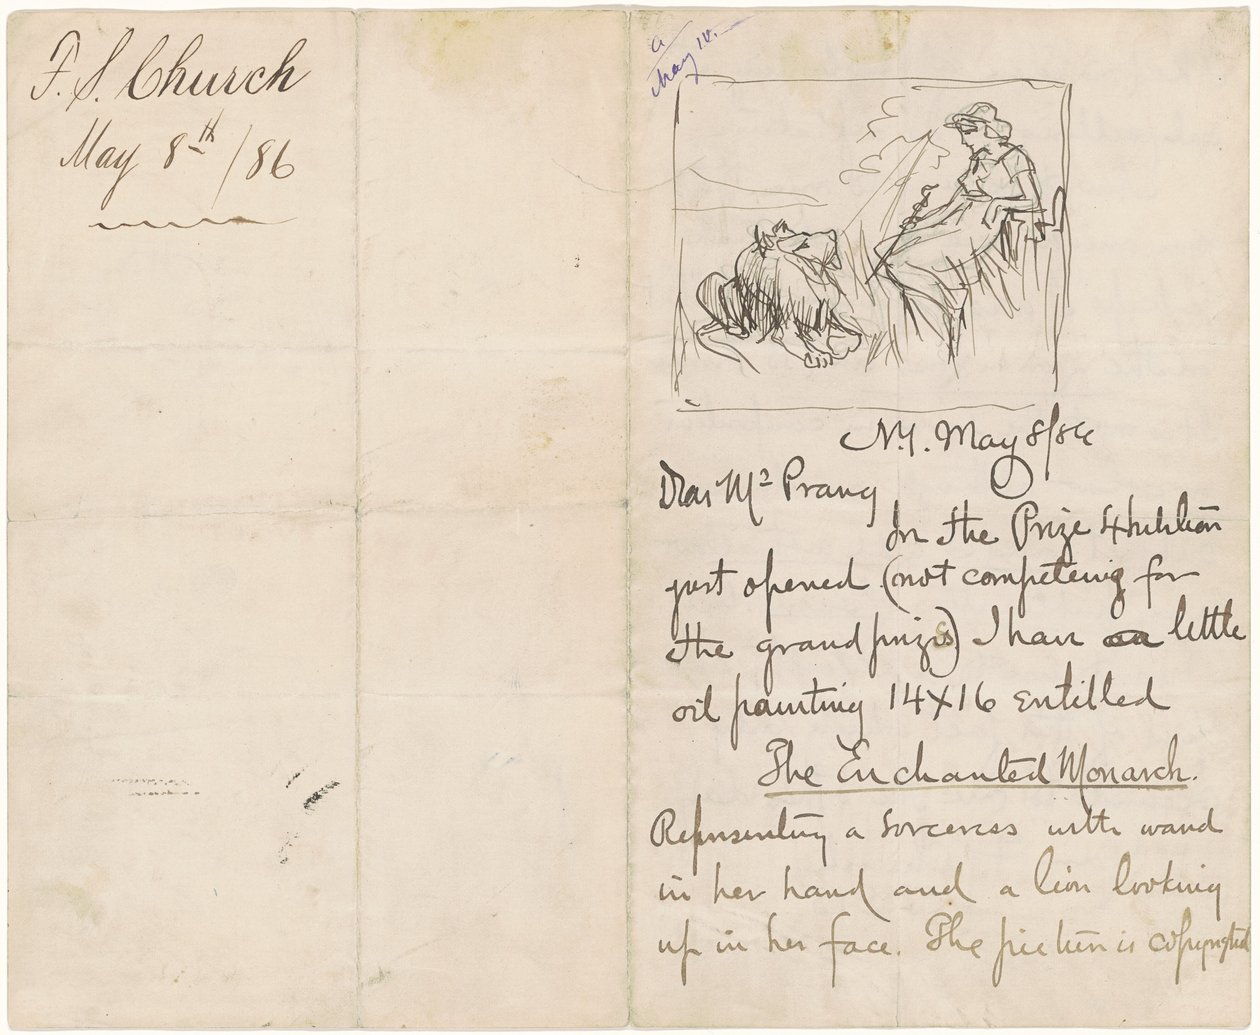 F. S. Church
May 8th / 86
a
May 10.
N.Y. May 8/86
Dear Mr Prang
In the Prize Exhibition
just opened (not competing for
the grand prizes) I have a little
oil painting 14X16 entitled
The Enchanted Monarch.
Representing a sorceress with wand
in her hand and a lion looking
up in her face. The picture is copyrighted